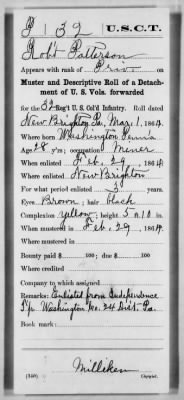 P 132 U.S.C.T.
Robt Patterson
Appears with rank of Priv on
Muster and Descriptive Roll of a Detachment of U. S. Vols. forwarded
for the 32 Reg't U. S. Col'd Infantry. Roll dated
New Brighton Pa, Mar. 1, 1864.
Where born Washington Penn'a
Age 28 y'rs; occupation Miner
When enlisted Feb. 29, 1864.
Where enlisted New Brighton
For what period enlisted 3 years.
Eyes Brown; hair black
Complexion Yellow; height 5 ft. 10 in.
When mustered in Feb. 29, 1864.
Where mustered in
Bounty paid $ 100; due $ 100
Where credited
Company to which assigned
Remarks: Enlisted from Independence
T'p. Washington Co. 24 Dist. Pa.
Book mark:
Milliken
(340) Copyist.